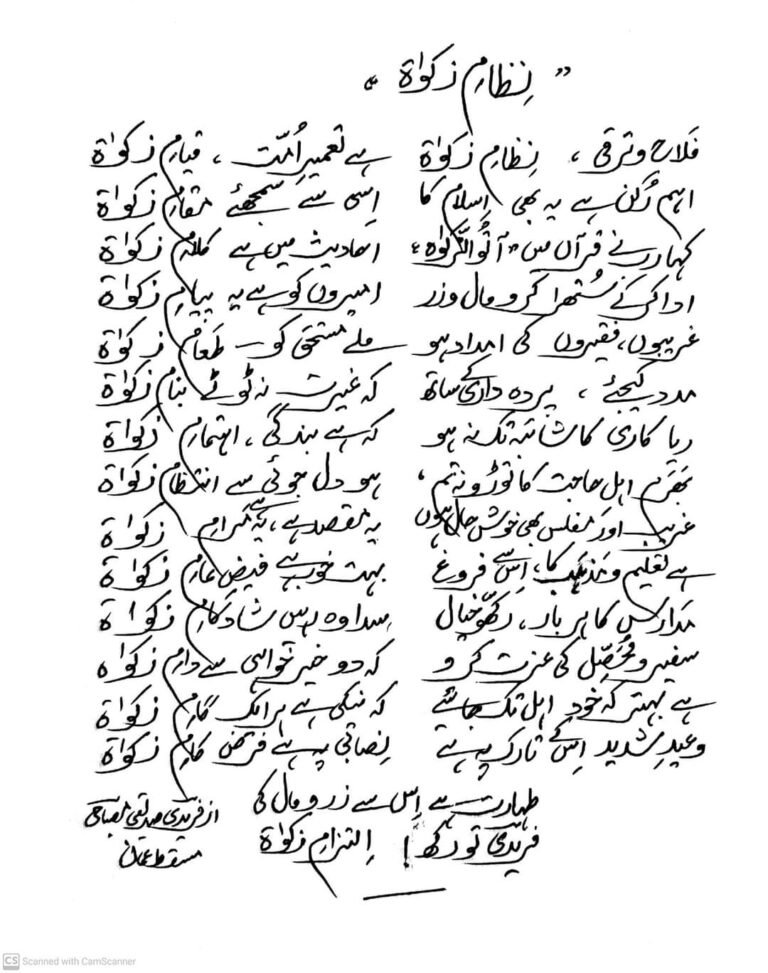 ” نِظامِ زکوٰۃ “
فَلاح و ترقی ، نِظامِ زکوٰۃ ہے تعمیرِ اُمّت ، قیامِ زکوٰۃ
اہم رُکن ہے یہ بھی اِسلام کا اِسی سے سمجھئے مقامِ زکوٰۃ
کہا رب نے قرآں میں ”آتُوا الزَّکوٰۃ“ احادیث میں ہے کلامِ زکوٰۃ
ادا کرکے سُتھرا کرو مال و زر امیروں کو ہے یہ پیامِ زکوٰۃ
غریبوں، فقیروں کی امداد ہو ملے مستحق کو طَعامِ زکوٰۃ
مدد کیجئے ، پردہ داری کے ساتھ کہ غیرت نہ ٹوٹے بنامِ زکوٰۃ
ریا کاری کا شائبہ تک نہ ہو کہ ہے بندگی ، اہتمامِ زکوٰۃ
بھَرَم اہلِ حاجت کا توڑو نہ تم ، ہو دل جوئی سے انتظامِ زکوٰۃ
غریب اور مفلس بھی خوش حال ہوں یہ مقصد ہے، یہ ہے مَرامِ زکوٰۃ
ہے تعلیم و مذہب کا، اِس سے فروغ بہت خوب ہے فیضِ عامِ زکوٰۃ
مَدارس کا ہر بار، رکھّو خیال سدا وہ رہیں شاد کامِ زکوٰۃ
سفیر و مُحَصِّل کی عزت کرو کہ دو خیر خواہی سے دامِ زکوٰۃ
ہے بہتر کہ خود اہل تک جائیے کہ نیکی ہے ہر ایک گامِ زکوٰۃ
وعیدِ شدید اِس کے تارک پہ ہے نِصابی پہ ہے فرض کامِ زکوٰۃ
طہارت ہے اِس سے زر و مال کی
فریدی تو رکھ ! اِلتزامِ زکوٰۃ
از فریدی صدیقی مصباحی
مسقط عمان
Scanned with CamScanner